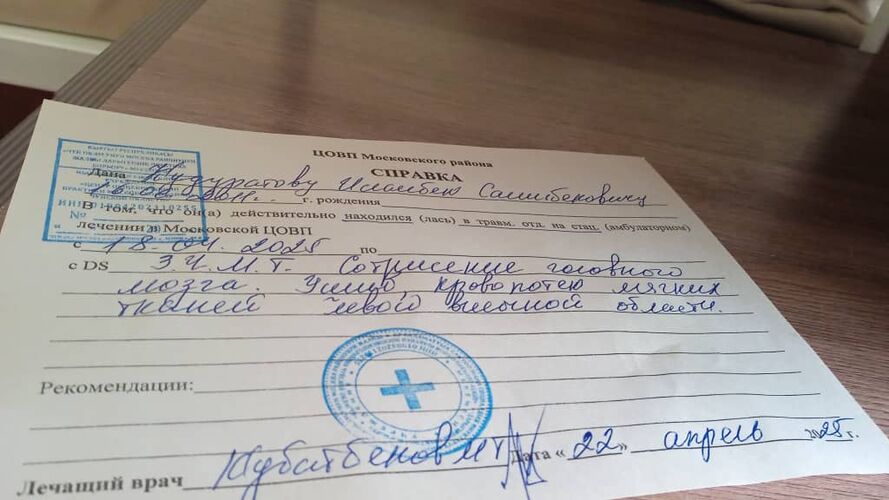 ЦОВП Московского района
СПРАВКА
КЫРГЫЗ РЕСПУБЛИКАСЫ
Дана Кудуратову Илимбек Самибековичу
г. рождения
В том, что он(а) действительно находился (лась) в травм. отд. на стац. (амбулаторном)
лечении в Московской ЦОВП
№
с 18.04.2025 по
с DS З.Ч.М.Т. Сотрясение головного
мозга. Ушиб, кровопотек мягких
тканей левого височной области.
Рекомендации:
Лечащий врач Дата « 22 » апрель 2025 г.